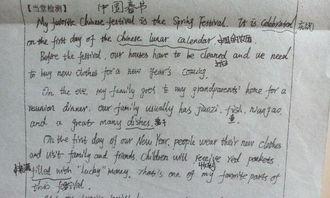 【当堂检测】 中国春节
My favorite Chinese festival is the Spring Festival. It is celebrated
on the first day of the Chinese lunar calendar.
Before the festival, our houses have to be cleaned and we need
to buy new clothes for a new year's coming.
On the eve, my family goes to my grandparents' home for a
reunion dinner. Our family usually has jiaozi, fish, niangao,
鱼
and a great many dishes.
On the first day of our New Year, people wear their new clothes
and visit family and friends. Children will receive red packets
filled with "lucky" money. That's one of my favorite parts of
this festival.